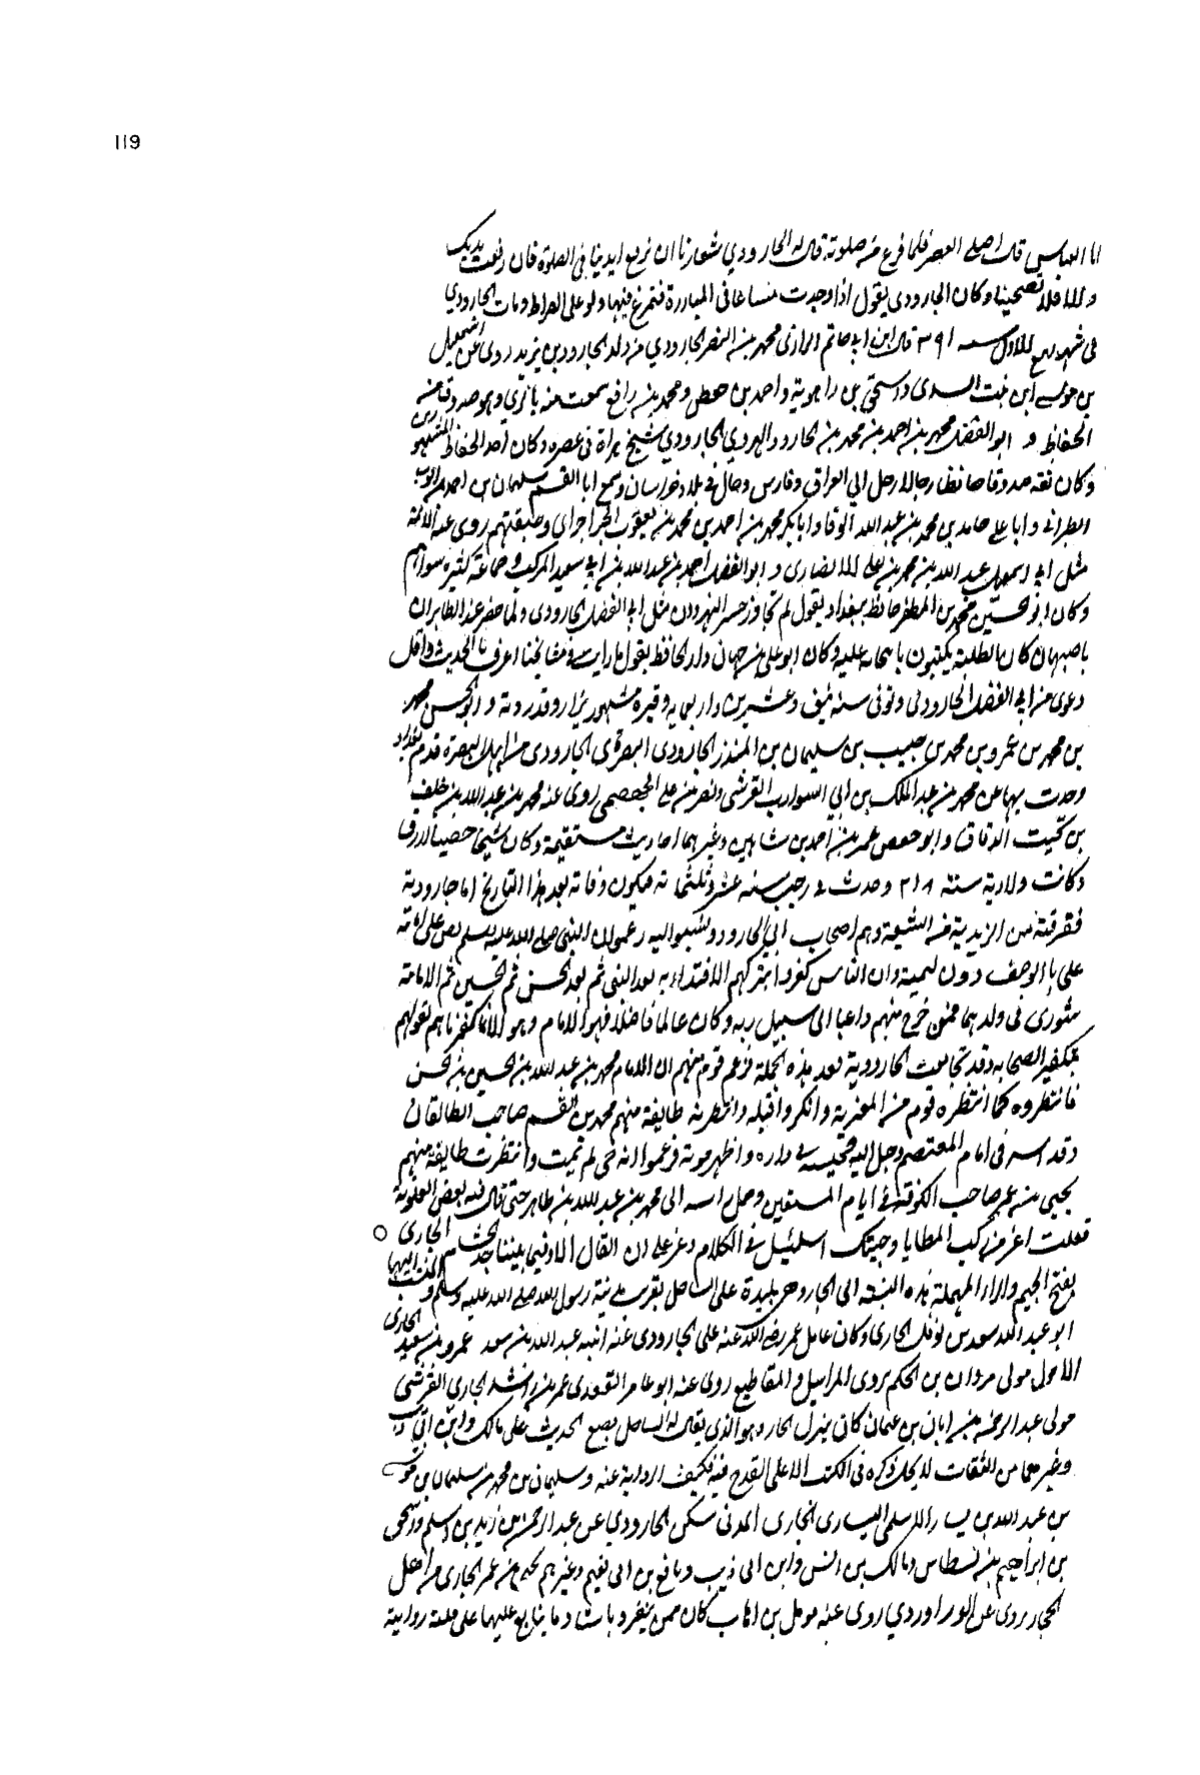 119
ابا العباس قال صلي العصر فلما فرغ من صلوته قال له الجارودي شعارنا ان نرفع ايدينا في الصلوة فان رفعت يديك
والا فلا تصحبنا وكان الجارودي يقول اذا وجدت مساغا في المباررة فتمرغ فيها ولو على الصراط ومات الجارودي
في شهر ربيع الاول سنه ٢٩١ قال ابن ابي حاتم الرازي محمد بن النضر الجارودي من ولد الجارود بن يزيد روى عن اسمعيل
بن موسى ابن بنت السدي واسحق بن راهوية واحمد بن حفص ومحمد بن رافع سمعت منه بالري وهو صدوق من
الحفاظ و ابو الفضل محمد بن احمد بن محمد بن الجارود الهروي الجارودي شيخ هراة في عصره وكان احد الحفاظ المشهورين
وكان ثقه صدوقا حافظا رحالا رحل الي العراق وفارس وجال في بلاد خراسان وسمع ابا القسم سليمان بن احمد بن ايوب
الطبراني وابا علي حامد بن محمد بن عبد الله الوفا وابا بكر محمد بن احمد بن محمد بن يعقوب الجرجراي وطبقتهم روى عنه الائمة
مثل ابي اسمعيل عبد الله بن محمد بن علي الانصاري و ابو الفضل احمد بن عبد الله بن ابي سعيد المركب وجماعة كثيره سواهم
وكان ابو الحسين محمد بن المظفر حافظ بغداد يقول لم تجاوز جسر النهروان مثل ابي الفضل الجارودي ولما حضر عند الطبراني
باصبهان كان الطلبة يكتبون بانتخابه عليه وكان ابو علي بن جهان دار الحافظ يقول ما رايت في مشايخنا اعرف بالحديث واقل
دعوى من ابي الفضل الجارودي وتوفى سنه نيف وعشرين واربعمايه وقبره مشهور يزار وقد زرته و ابو الحسن محمد
بن محمد بن عمرو بن محمد بن حبيب بن سليمان بن المنذر الجارودي البصري الجارودي من اهل البصرة قدم بغداد
وحدث بها عن محمد بن عبد الملك بن ابي الشوارب القرشي ونصر بن علي الجهضمي روى عنه محمد بن عبد الله بن خلف
بن بخيت الدقاق وابو حفص عمر بن احمد بن شاهين وغيرهما احاديث مستقيمة وكان شيخا خضيبا ازرق
وكانت ولادته سنة ٢١٨ وحدث في رجب سنه عشر وثلثمائة فيكون وفاته بعد هذا التاريخ اما جارودية
ففرقة من الزيدية من الشيعة وهم اصحاب ابي الجارود ونسبوا اليه زعموا ان النبي صلي الله عليه وسلم نص علي امامة
علي بالوصف دون تسمية وان الناس كفروا بتركهم الاقتداء به بعد النبي ثم بعد الحسن ثم الحسين ثم الامامة
شورى في ولدهما فمن خرج منهم داعيا الى سبيل ربه وكان عالما فاضلا فهو الامام وهو لا انما كفرناهم لقولهم
بتكفير الصحابه وقد تحزبت الجارودية بعد هذه الجملة فزعم قوم منهم ان الامام محمد بن عبد الله بن الحسين بن الحسن
فانتظروه كما انتظره قوم من المغيرية وانكروا قتله وانتظرت طايفة منهم محمد بن القسم صاحب الطالقان
وقد اسر في ايام المعتصم وحمل اليه فحبسه في داره واظهر موته فزعموا انه حي لم يمت وانتظرت طايفة منهم
يحيى بن عمر صاحب الكوفة في ايام المستعين وحمل راسه الى محمد بن عبد الله بن طاهر حتى قال فيه بعض العلوية
قتلت اعز من ركب المطايا وجيتك استلينك في الكلام وعز علي ان القاك الا وفيما بيننا حد الحسام الجاري
بفتح الجيم والراء المهملة هذه النسبة الى الجار وهي بليدة على الساحل بقرب مدينة رسول الله صلي الله عليه وسلم والمنتسب اليها
ابو عبد الله سعد بن نوفل الجاري وكان عامل عمر رضي الله عنه على الجار روى عنه ابنه عبد الله بن سعد عمرو بن سعيد الجاري
الاحول مولى مروان بن الحكم يروى المراسيل و المقاطيع روى عنه ابو عامر العقدى عمر بن راشد الجاري القرشي
مولى عبد الرحمن بن ابان بن عثمان كان ينزل الجار وهو الذي يقال له الساحلي يضع الحديث على مالك وابن ابي ذيب
وغيرهما من الثقات لا يحل ذكره في الكتب الا على القدح فيه فكيف الرواية عنه وسليمان بن محمد بن سليمان بن موسى
بن عبد الله بن يسار الاسلمي اليساري الجاري المدني سكن الجار يروي عن عبد الرحمن بن زيد بن اسلم واسحق
بن ابراهيم بن نسطاس ومالك بن انس وابن ابي ذيب ونافع بن ابي نعيم وغيرهم يحيى بن عمر الجاري من اهل
الجار يروى عن الدراوردي روى عنه مومل بن اهاب كان ممن ينفرد باشياء لا يتابع عليها على قلة روايته